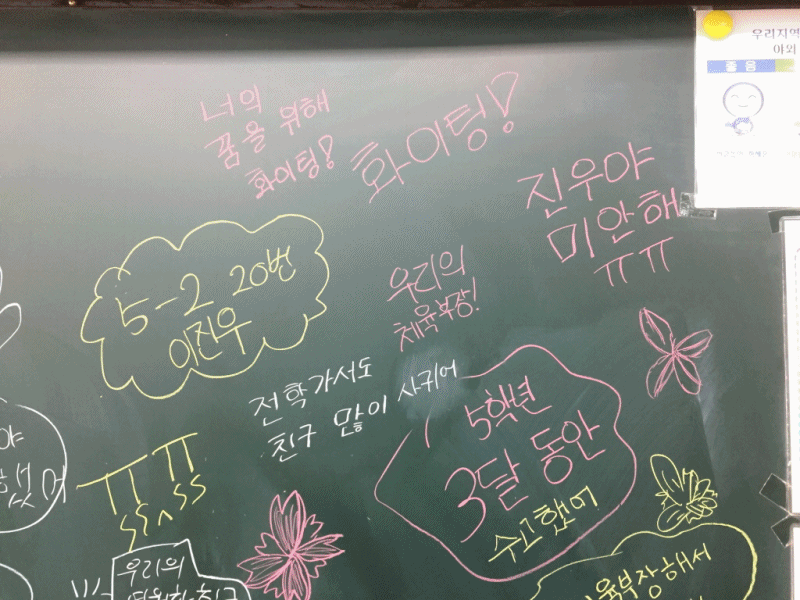 너의
꿈을 위해
화이팅!
화이팅!
진우야
미안해
ㅠㅠ
우리지역
야외
좋음
5-2 20번
이진우
우리의
체육부장!
전학가서도
친구 많이 사귀어
5학년
3달 동안
수고했어
ㅠㅠ
야
우리의
육부장해서